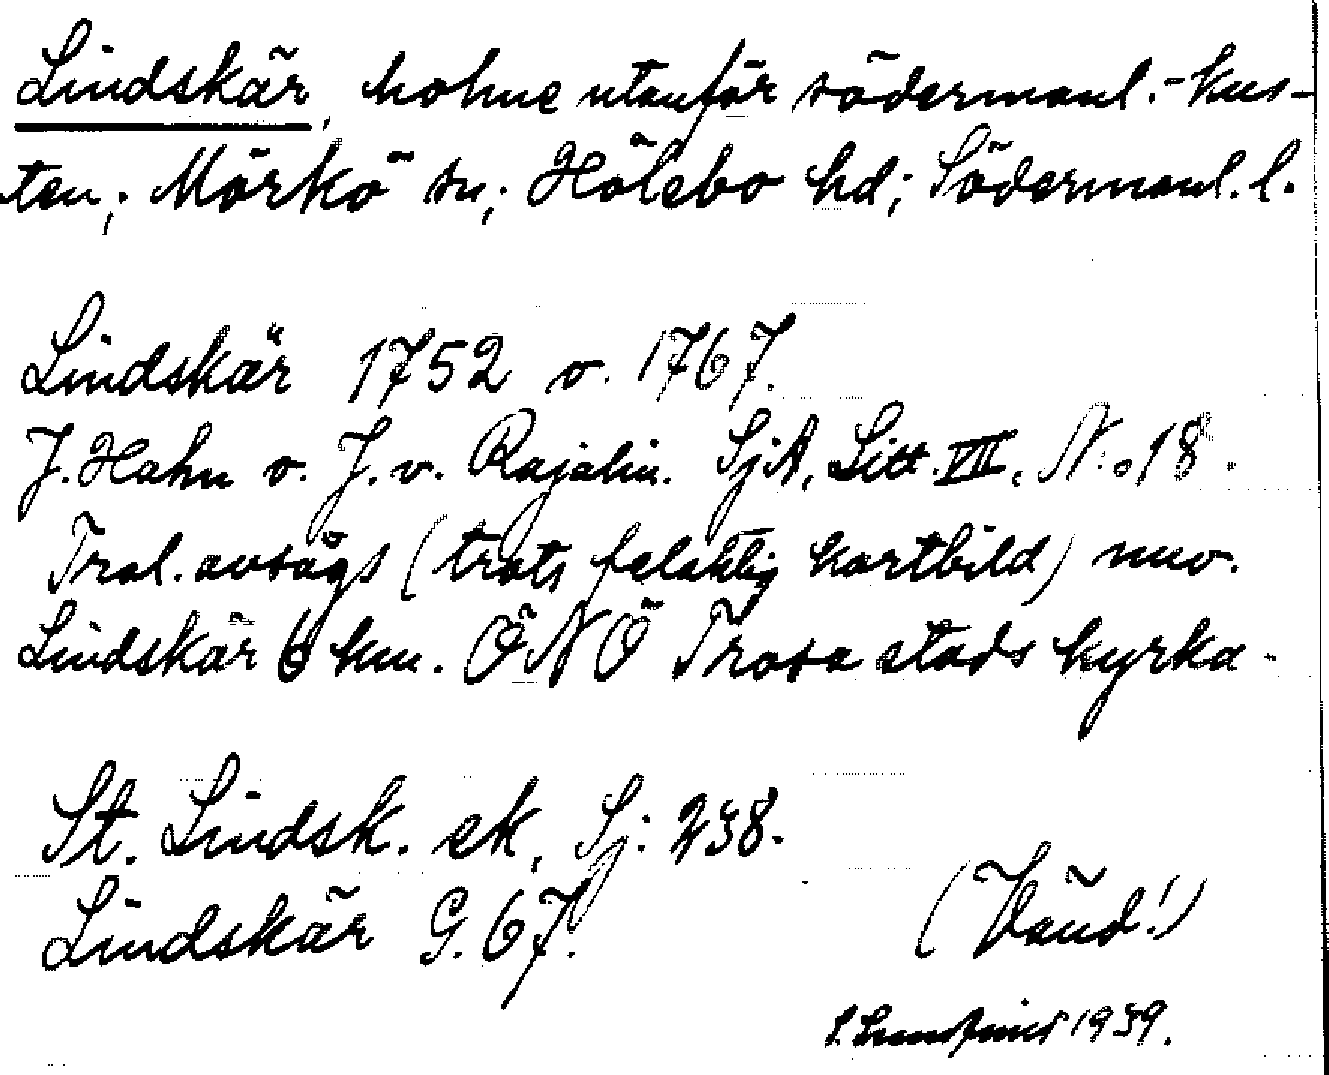 Lindskär, holme utanför södermanl.-kus-
ten; Mörkö sn; Hölebo hd; Södermanl. l.
Lindskär 1752 o. 1767.
J. Hahn o. J. v. Rajalin. SjA, Litt. VII. N:o 18.
Trol. avsågs (trots felaktig kartbild) nuv.
Lindskär 6 km. ÖNÖ Trosa stads kyrka.
St. Lindsk. ek, Sj: 238.
Lindskär G. 67.
(Vänd!)
1939.